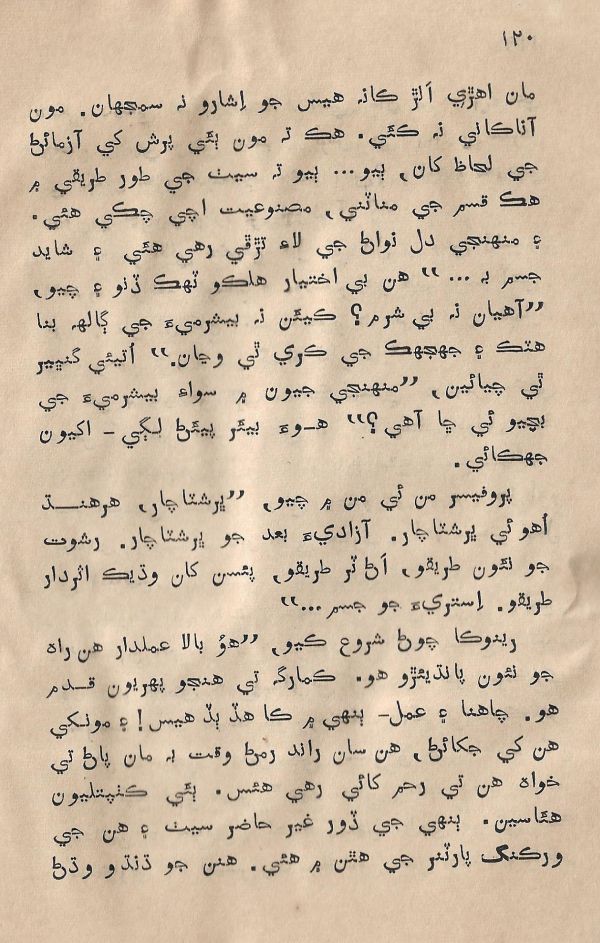 ۱۲۰
مان اهڙي اَلڙ ڪانہ هيس جو اِشارو نہ سمجهان. مون
آناڪاني نہ ڪئي. هڪ تہ مون ٻئي پرش کي آزمائڻ
جي لحاظ کان, ٻيو... ٻيو تہ سيٺ جي طور طريقي ۾
هڪ قسم جي مناٽني, مصنوعيت اچي چڪي هئي.
۽ منهنجي دل نواڻ جي لاءِ تڙڦي رهي هئي ۽ شايد
جسم بہ ...“ هن بي اختيار هلڪو ٽهڪ ڏنو ۽ چيو,
”آهيان نہ بي شرم؟ ڪيئن نہ بيشرميءَ جي ڳالهہ بنا
هٽڪ ۽ جهجهڪ جي ڪري ٿي وڃان.“ اُتيئي گنڀير
ٿي چيائين, ”منهنجي جيون ۾ سواءِ بيشرميءَ جي
بچيو ئي ڇا آهي؟“ هـوءَ بيئر پيئڻ لڳي - اکيون
جهڪائي.
پروفيسر من ئي من ۾ چيو, ”ڀرشٽاچار, هرهنـڌ
اُهو ئي ڀرشٽاچار. آزاديءَ بعد جو ڀرشٽاچار. رشوت
جو نئون طريقو, اَڻ ٽر طريقو, پئسن کان وڌيڪ اثردار
طريقو. اِستريءَ جو جسم...“
رينوڪا چوڻ شروع ڪيو, ”هوُ بالا عملدار هن راہ
جو نئون پانڌيئڙو هو. ڪمارگہ تي هنجو پهريون قـدم
هو. چاهنا ۽ عمل- ٻنهي ۾ ڪا هڏ ٻڏ هيس! ۽ مونکي
هن کي جکائڻ, هن سان راند رمڻ وقت بہ مان پاڻ تي
خواہ هن تي رحم کائي رهي هئس. ٻئي ڪٺپتليون
هئاسين. ٻنهي جي ڏور غير حاضر سيٺ ۽ هن جي
ورڪنگ پارٽنر جي هٿن ۾ هئي. هنن جو ڌنڌو وڌڻ